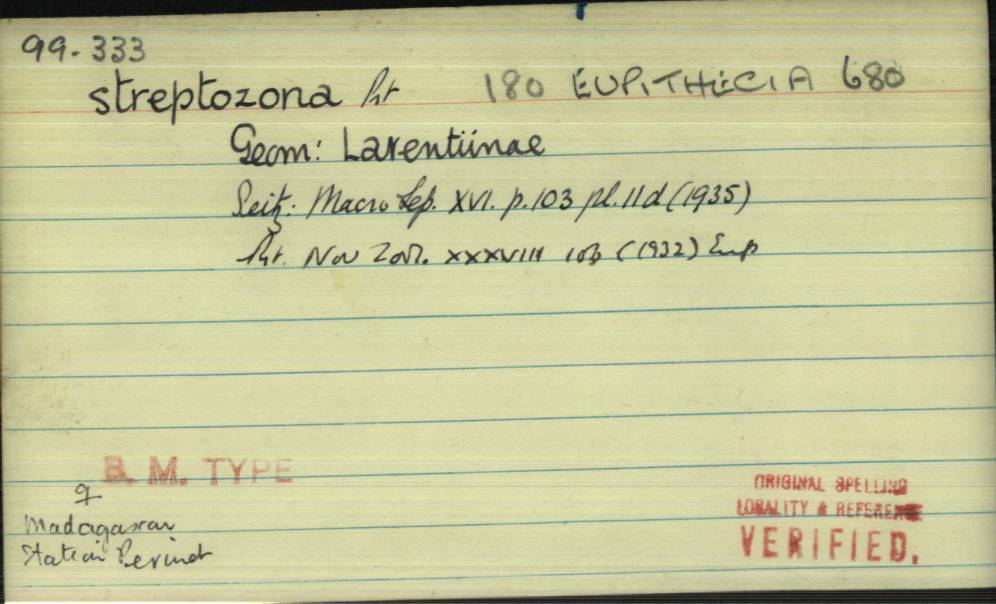 99-333
streptozona Prt 180 EUPITHECIA 680
Geom: Larentiinae
Seitz: Macro Lep. XVI. p.103 pl.11d (1935)
Prt. Nov Zool. XXXVIII (1932) Eup
B. M. TYPE
♀
Madagascar
Station Perinet
ORIGINAL SPELLING
LOCALITY & REFERENCE
VERIFIED.